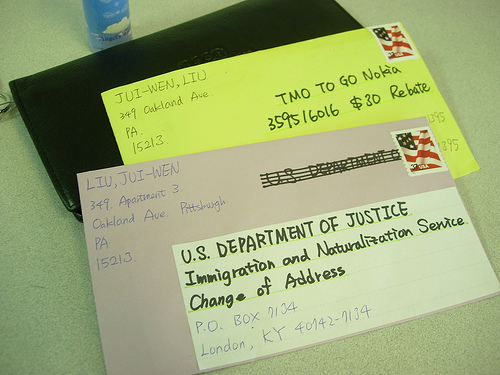 JUI-WEN, LIU
349 Oakland Ave.
PA.
15213.
TMO TO GO Nokia
3595/6016 $30 Rebate
LIU, JUI-WEN
349. Apartment 3.
Oakland Ave. Pittsburgh
PA
15213.
U.S. DEPARTMENT OF JUSTICE
Immigration and Naturalization Service
Change of Address
P.O. BOX 7134
London, KY 40742-7134